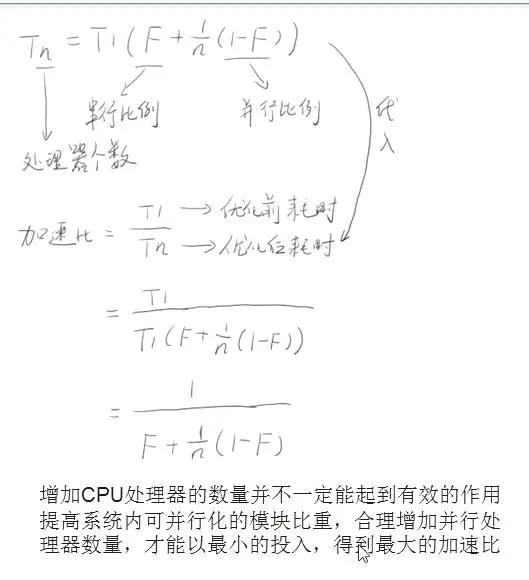 Tn = T1 ( F + 1/n (1-F) )
串行比例 并行比例
处理器个数
代入
加速比 = T1/Tn → 优化前耗时
→ 优化后耗时
= T1 / T1(F + 1/n (1-F))
= 1 / F + 1/n (1-F)
增加CPU处理器的数量并不一定能起到有效的作用
提高系统内可并行化的模块比重，合理增加并行处
理器数量，才能以最小的投入，得到最大的加速比